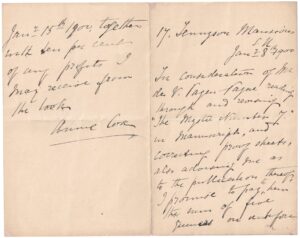 17, Tennyson Mansions
Jan: 8th 1900
In consideration of Mr
de V. Payen-Payne reading
through and revising
"The Mystic Number 7"
in manuscript, and
correcting proof sheets,
also advising me as
to the publication thereof
I promise to pay him
the sum of five
guineas on or before
Jan: 15th 1900, together
with ten per cent
of any profits I
may receive from
the book
Annie Cook